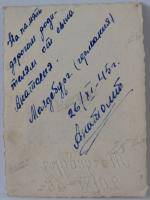 На память
дорогим роди-
телям от сына
Анатолия.
Магдебург (германия)
26/VI-45 г.